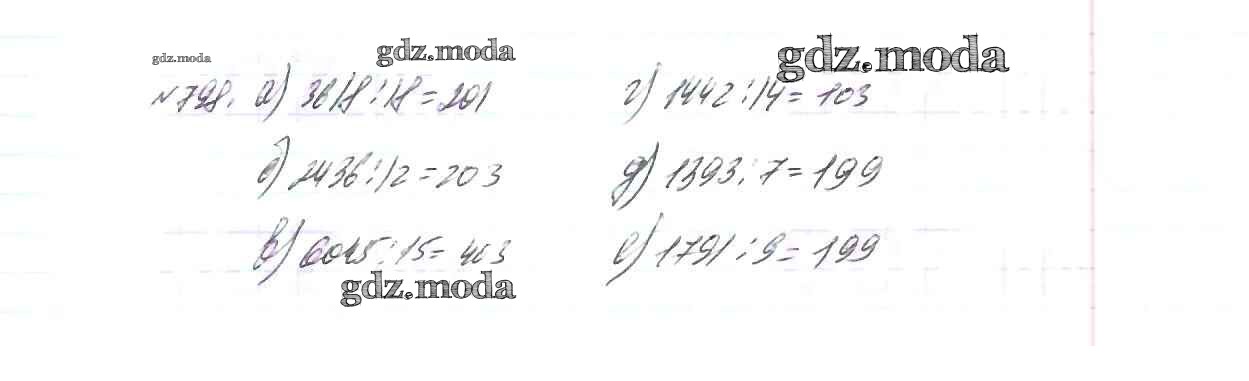 gdz.moda gdz.moda gdz.moda
№798. а) 3618:18=201 г) 1442:14=103
б) 2436:12=203 д) 1393:7=199
в) 6045:15=403 е) 1791:9=199
gdz.moda